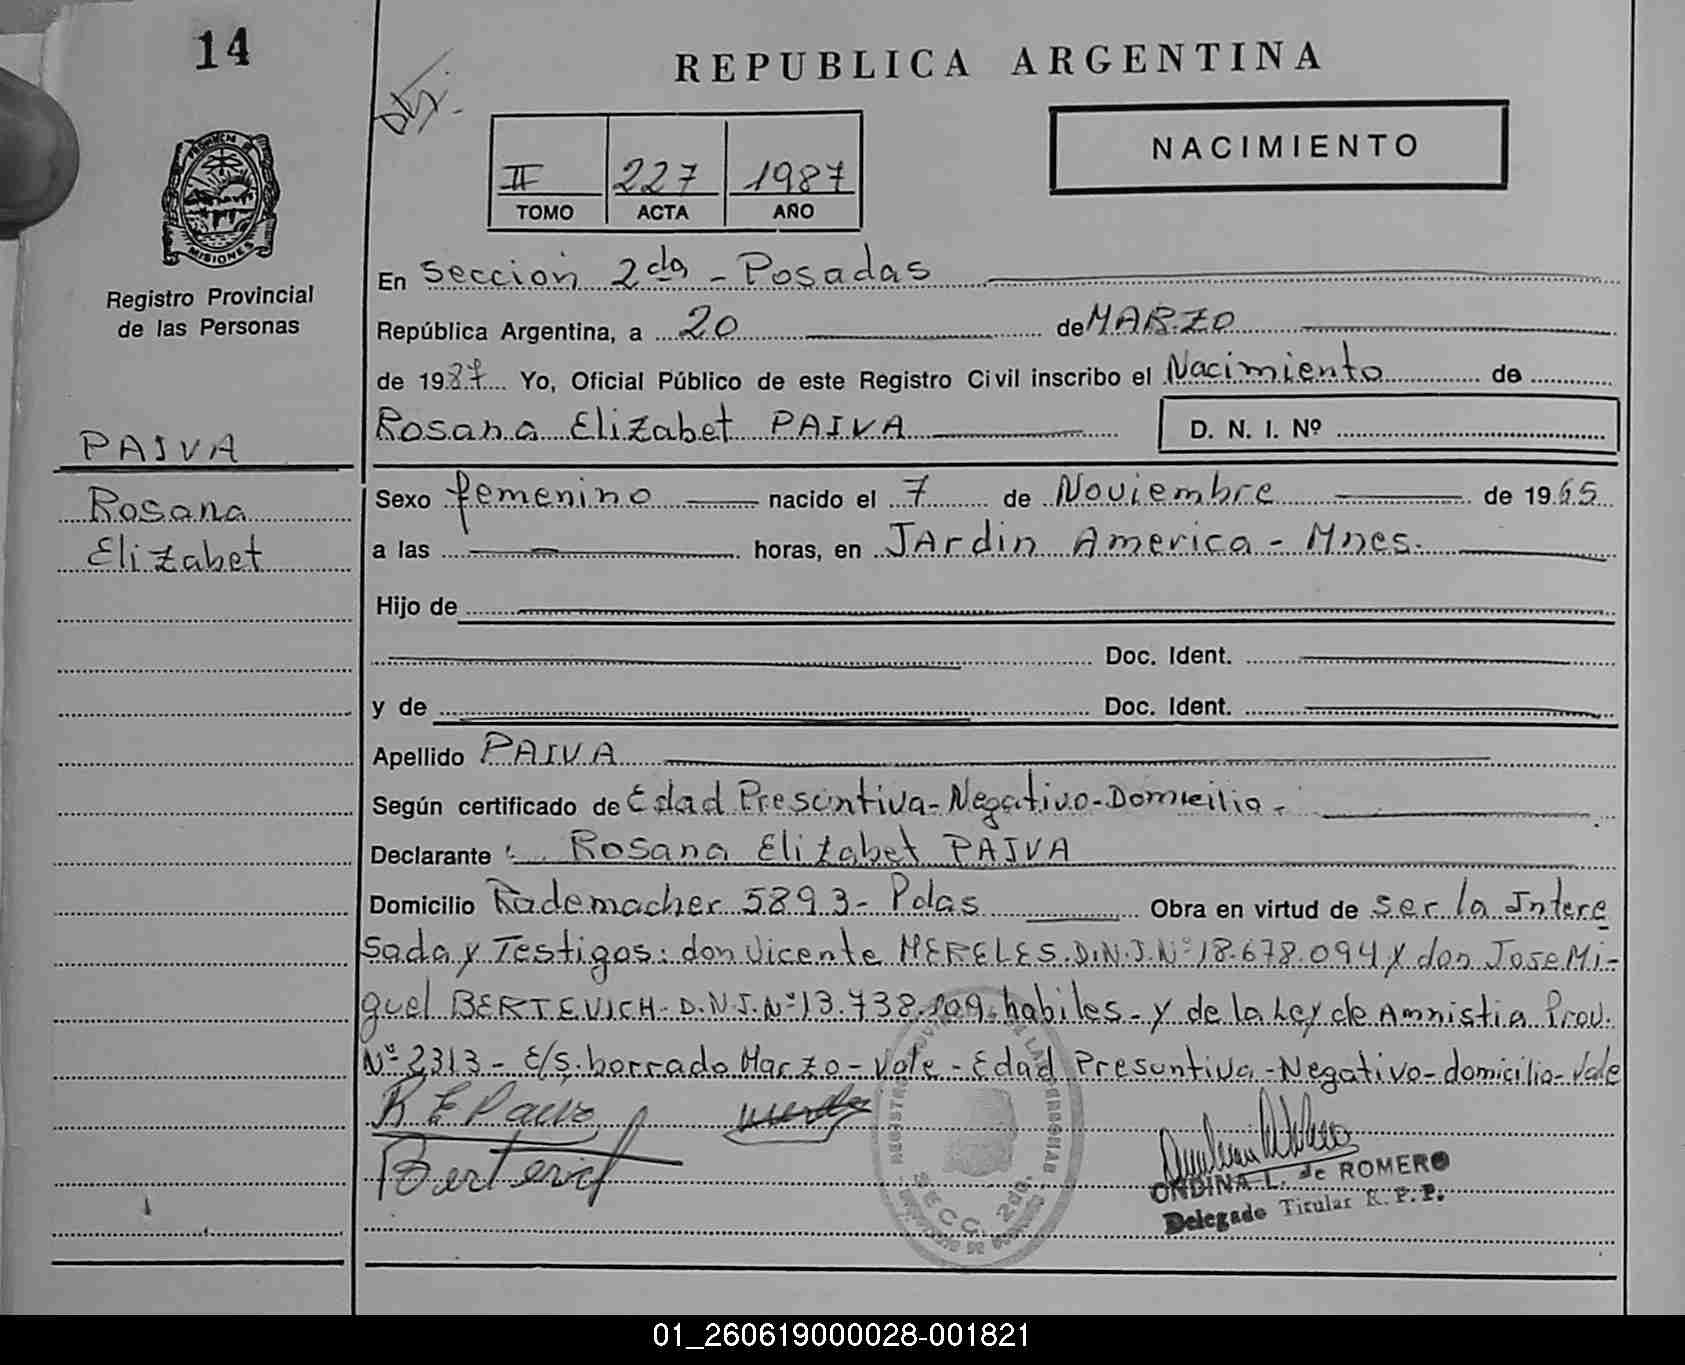 14
REPUBLICA ARGENTINA
NACIMIENTO
II 227 1987
TOMO ACTA AÑO
PROVINCIA DE
MISIONES
Registro Provincial
de las Personas
En Sección 2da - Posadas
República Argentina, a 20 de MARZO
de 1987 Yo, Oficial Público de este Registro Civil inscribo el Nacimiento de
Rosana Elizabet PAIVA D. N. I. Nº
PAIVA
Rosana
Elizabet
Sexo femenino nacido el 7 de Noviembre de 1965
a las horas, en JArdin America - Mnes.
Hijo de
Doc. Ident.
y de Doc. Ident.
Apellido PAIVA
Según certificado de Edad Presuntiva - Negativo - Domicilio -
Declarante Rosana Elizabet PAIVA
Domicilio Rademacher 5893 - Pdas Obra en virtud de ser la Intere
sada y Testigos: don Vicente MERELES. D.N.I. Nº 18.678.094 y don Jose Mi-
guel BERTEVICH - D.N.I. Nº 13.738.109 habiles - y de la Ley de Amnistia Prov.
Nº 2313 - E/S. borrado Marzo - Vale - Edad Presuntiva - Negativo - domicilio - Vale
R E Paiva
Bertevich
SECC. 2da.
ONDINA L. de ROMERO
Delegado Titular R. P. P.
01_260619000028-001821